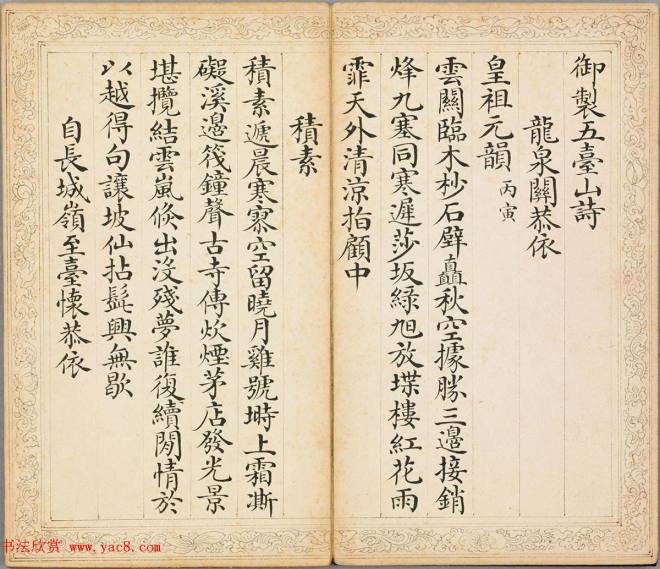 御製五臺山詩
龍泉關恭依
皇祖元韻 丙寅
雲關臨木杪石壁矗秋空據勝三邊接銷
烽九塞同寒遲莎坂綠旭放堞樓紅花雨
霏天外清涼指顧中
積素
積素遞晨寒寥空留曉月雞號塒上霜澌
礙溪邊筏鐘聲古寺傳炊煙茅店發光景
堪攬結雲嵐倏出沒殘夢誰復續閒情於
以越得句讓坡仙拈髭興無歇
自長城嶺至臺懷恭依
书法欣赏 www.yac8.com